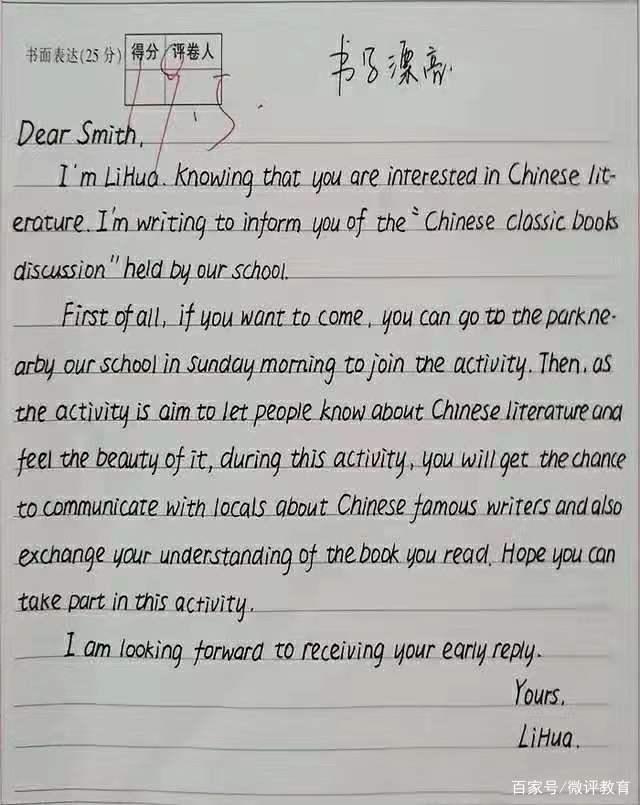 书面表达(25分)
得分 评卷人
书写漂亮.
Dear Smith,
I'm LiHua. Knowing that you are interested in Chinese lit-
erature. I'm writing to inform you of the "Chinese classic books
discussion" held by our school.
First of all, if you want to come, you can go to the park ne-
arby our school in Sunday morning to join the activity. Then, as
the activity is aim to let people know about Chinese literature and
feel the beauty of it, during this activity, you will get the chance
to communicate with locals about Chinese famous writers and also
exchange your understanding of the book you read. Hope you can
take part in this activity.
I am looking forward to receiving your early reply.
Yours,
LiHua.
百家号/微评教育